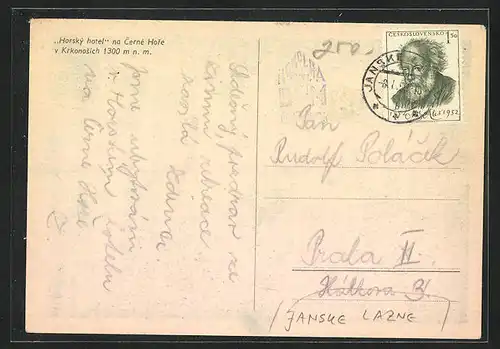 „Horský hotel" na Černé Hoře
v Krkonoších 1300 m n. m.
250.-
ČESKOSLOVENSKO
1.50
JANSKÉ
1952
Srdečný pozdrav ze
zimní rekreace
zasílá
Zdena.
Jsme ubytováni
v Horském hotelu
na Černé Hoře
Pan
Rudolf Poláček
Praha II.
Hálkova 3.
JANSKE LAZNE